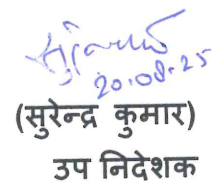 20.08.25
(सुरेन्द्र कुमार)
उप निदेशक